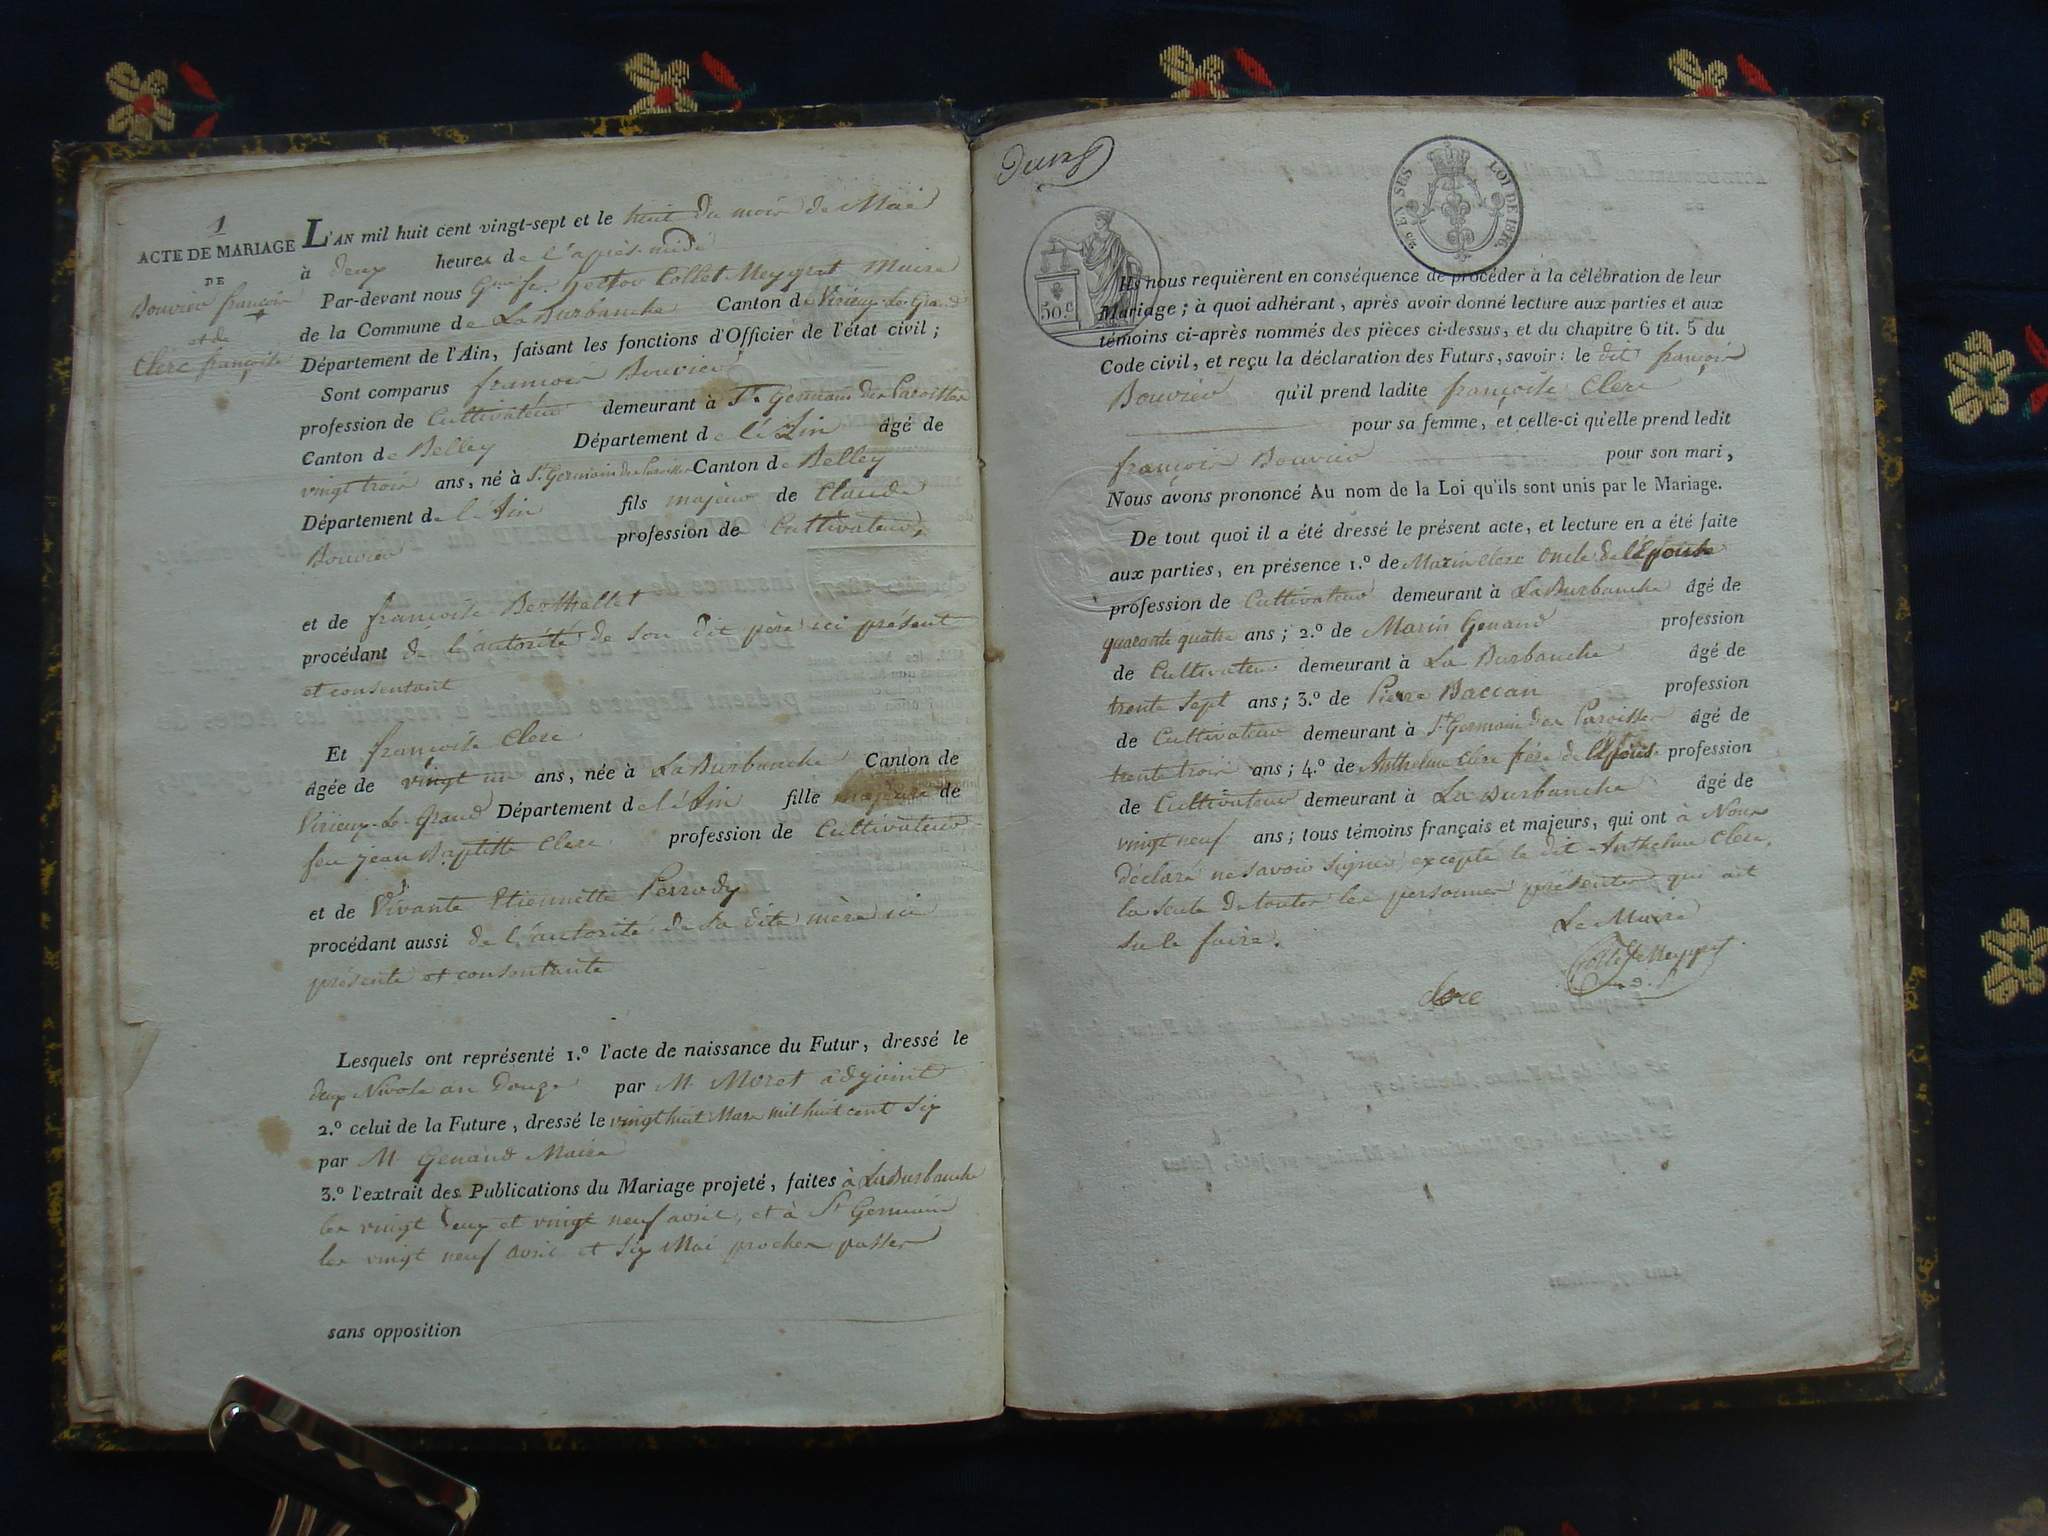 1
ACTE DE MARIAGE
DE
Bouvier françois
et de
Clerc françoise
L'AN mil huit cent vingt-sept et le huit du mois de Mai
à deux heures de l'après-midi
Par-devant nous Collet-Meygret Maire
de la Commune de La Burbanche Canton de Virieu-Le-Grand
Département de l'Ain, faisant les fonctions d'Officier de l'état civil;
Sont comparus françois Bouvier
profession de Cultivateur demeurant à St Germain des Paroisses
Canton de Belley Département de l'Ain âgé de
vingt trois ans, né à St Germain des Paroisses Canton de Belley
Département de l'Ain fils majeur de Claude
Bouvier profession de Cultivateur,
et de françoise Berthellet
procédant de l'autorité de son dit père ici présent
et consentant
Et françoise Clerc
âgée de vingt un ans, née à La Burbanche Canton de
Virieux-Le-Grand Département de l'Ain fille majeure de
feu jean Baptiste Clerc profession de Cultivateur
et de Vivante Etiennette Perrody
procédant aussi de l'autorité de sa dite mère ici
présente et consentante
Lesquels ont représenté 1.º l'acte de naissance du Futur, dressé le
deux Nivose an Douze par M. Moret adjoint
2.º celui de la Future, dressé le vingt huit Mars mil huit cent six
par M. Genand Maire
3.º l'extrait des Publications du Mariage projeté, faites à La Burbanche
les vingt deux et vingt neuf avril, et à St Germain
les vingt neuf avril et six Mai proches passés
sans opposition
EN SUS
LOI DE 1816.
50.c
Ils nous requièrent en conséquence de procéder à la célébration de leur
Mariage; à quoi adhérant, après avoir donné lecture aux parties et aux
témoins ci-après nommés des pièces ci-dessus, et du chapitre 6 tit. 5 du
Code civil, et reçu la déclaration des Futurs, savoir: le dit françois
Bouvier qu'il prend ladite françoise Clerc
pour sa femme, et celle-ci qu'elle prend ledit
françois Bouvier pour son mari,
Nous avons prononcé Au nom de la Loi qu'ils sont unis par le Mariage.
De tout quoi il a été dressé le présent acte, et lecture en a été faite
aux parties, en présence 1.º de Marin Clerc oncle de l'Epouse
profession de Cultivateur demeurant à La Burbanche âgé de
quarante quatre ans; 2.º de Marin Genand profession
de Cultivateur demeurant à La Burbanche âgé de
trente sept ans; 3.º de Pierre Baccan profession
de Cultivateur demeurant à St Germain des Paroisses âgé de
trente trois ans; 4.º de Anthelme Clerc frère de l'Epouse profession
de Cultivateur demeurant à La Burbanche âgé de
vingt neuf ans; tous témoins français et majeurs, qui ont à Nous
déclaré ne savoir signer excepté le dit Anthelme Clerc,
la seule de toutes les personnes présentes qui ait
su le faire.
Le Maire
Collet-Meygret
clerc